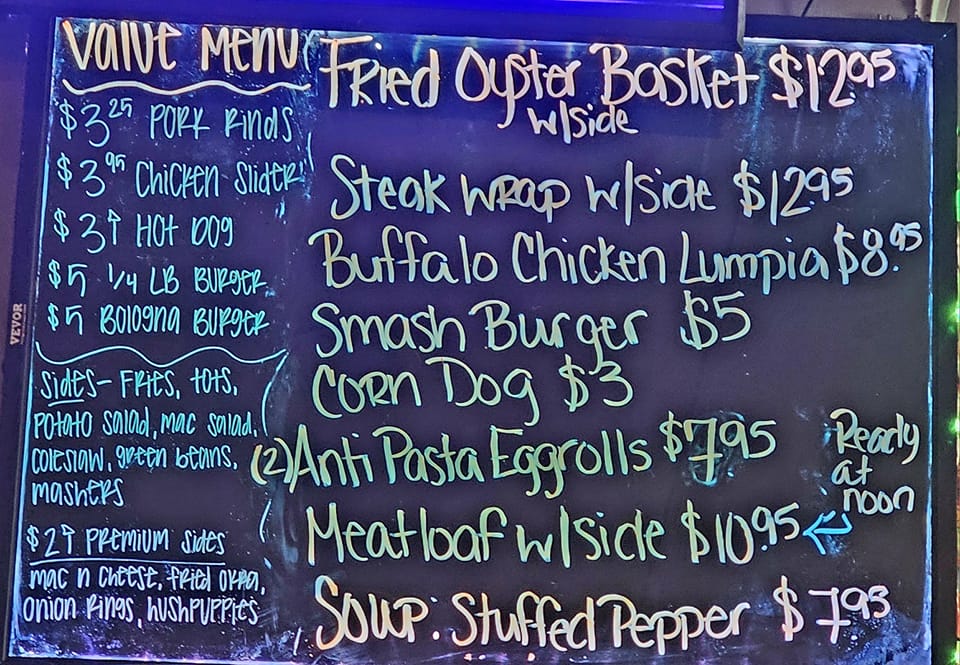 Value Menu
$3.25 Pork Rinds
$3.95 Chicken Slider
$3↑ Hot Dog
$5 1/4 LB Burger
$5 Bologna Burger
Sides- Fries, tots,
Potato salad, mac salad,
coleslaw, green beans,
mashers
$2↑ Premium Sides
mac n cheese, fried okra,
onion rings, hushpuppies
Fried Oyster Basket $12.95
w/side
Steak Wrap w/side $12.95
Buffalo Chicken Lumpia $8.95
Smash Burger $5
Corn Dog $3
(2) Anti Pasta Eggrolls $7.95
Meatloaf w/side $10.95 ←
Ready
at
noon
Soup: Stuffed Pepper $7.95
VEVOR